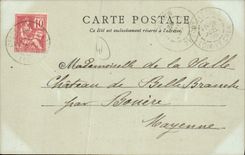 CARTE POSTALE
Ce côté est exclusivement réservé à l'adresse.
10
Mademoiselle de la Vallo
Château de Belle Branche
par Bouère
Mayenne